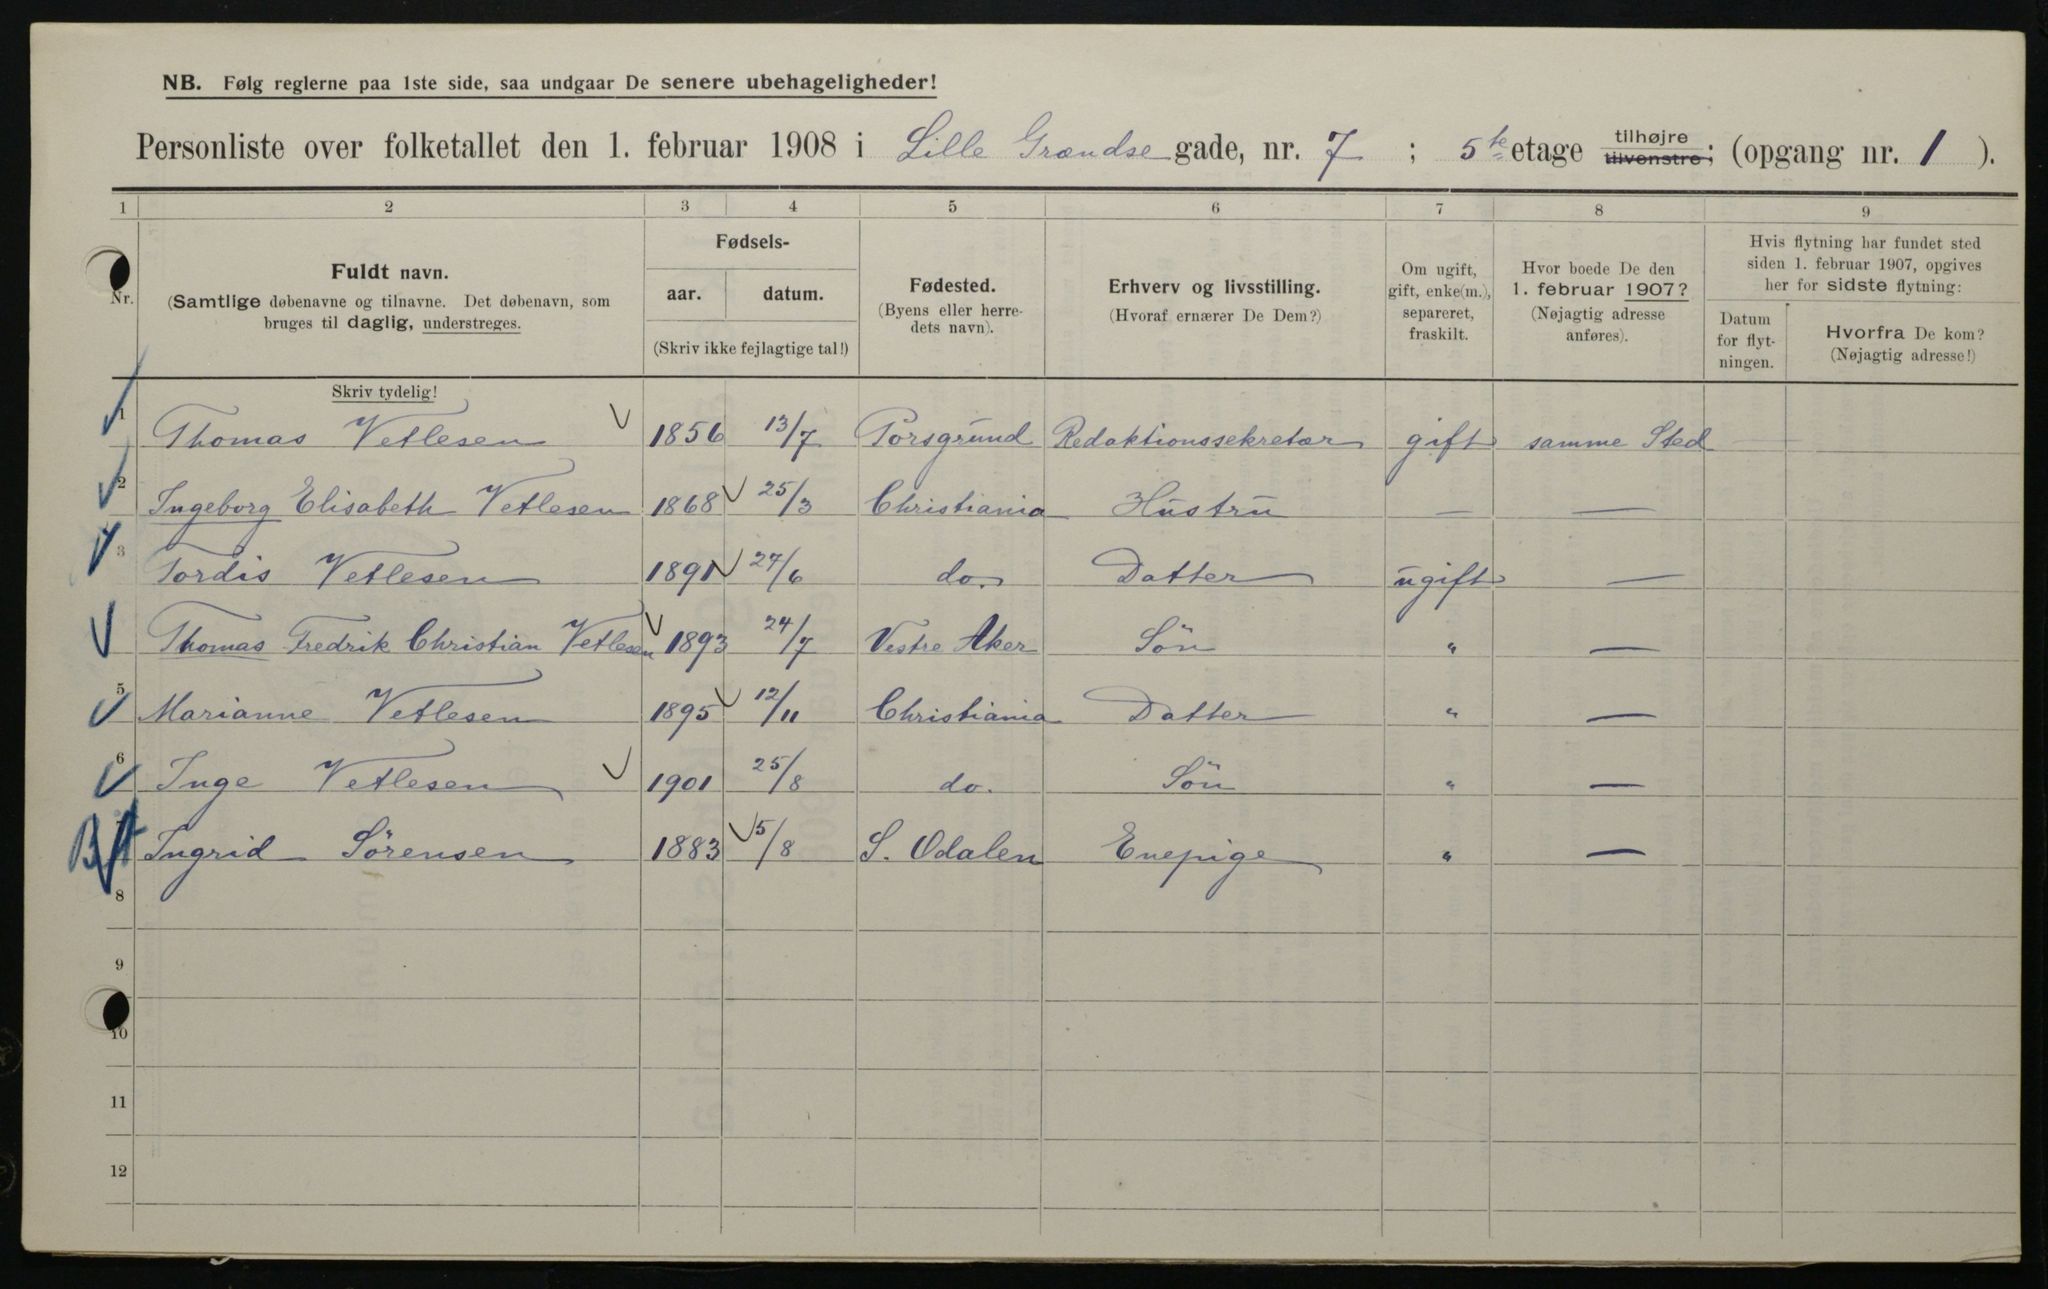 NB. Følg reglerne paa 1ste side, saa undgaar De senere ubehageligheder!
Personliste over folketallet den 1. februar 1908 i Lille Grændse gade, nr. 7 ; 5te etage tilhøjre tilvenstre; (opgang nr. 1 ).
1 2 3 4 5 6 7 8 9
Nr.
Fuldt navn.
(Samtlige døbenavne og tilnavne. Det døbenavn, som
bruges til daglig, understreges.
Skriv tydelig!
Fødsels-
aar. datum.
(Skriv ikke fejlagtige tal!)
Fødested.
(Byens eller herre-
dets navn).
Erhverv og livsstilling.
(Hvoraf ernærer De Dem?)
Om ugift,
gift, enke(m.),
separeret,
fraskilt.
Hvor boede De den
1. februar 1907?
(Nøjagtig adresse
anføres).
Hvis flytning har fundet sted
siden 1. februar 1907, opgives
her for sidste flytning:
Datum
for flyt-
ningen.
Hvorfra De kom?
(Nøjagtig adresse!)
1 Thomas Vetlesen 1856 13/7 Porsgrund Redaktionssekretær gift samme Sted
2 Ingeborg Elisabeth Vetlesen 1868 25/3 Christiania Hustru — —
3 Tordis Vetlesen 1891 27/6 do. Datter ugift —
Thomas Fredrik Christian Vetlesen 1893 24/7 Vestre Aker Sön " —
5 Marianne Vetlesen 1895 12/11 Christiania Datter " —
6 Inge Vetlesen 1901 25/8 do. Sön " —
7 Ingrid Sörensen 1883 5/8 S. Odalen Enepige " —
8
9
10
11
12